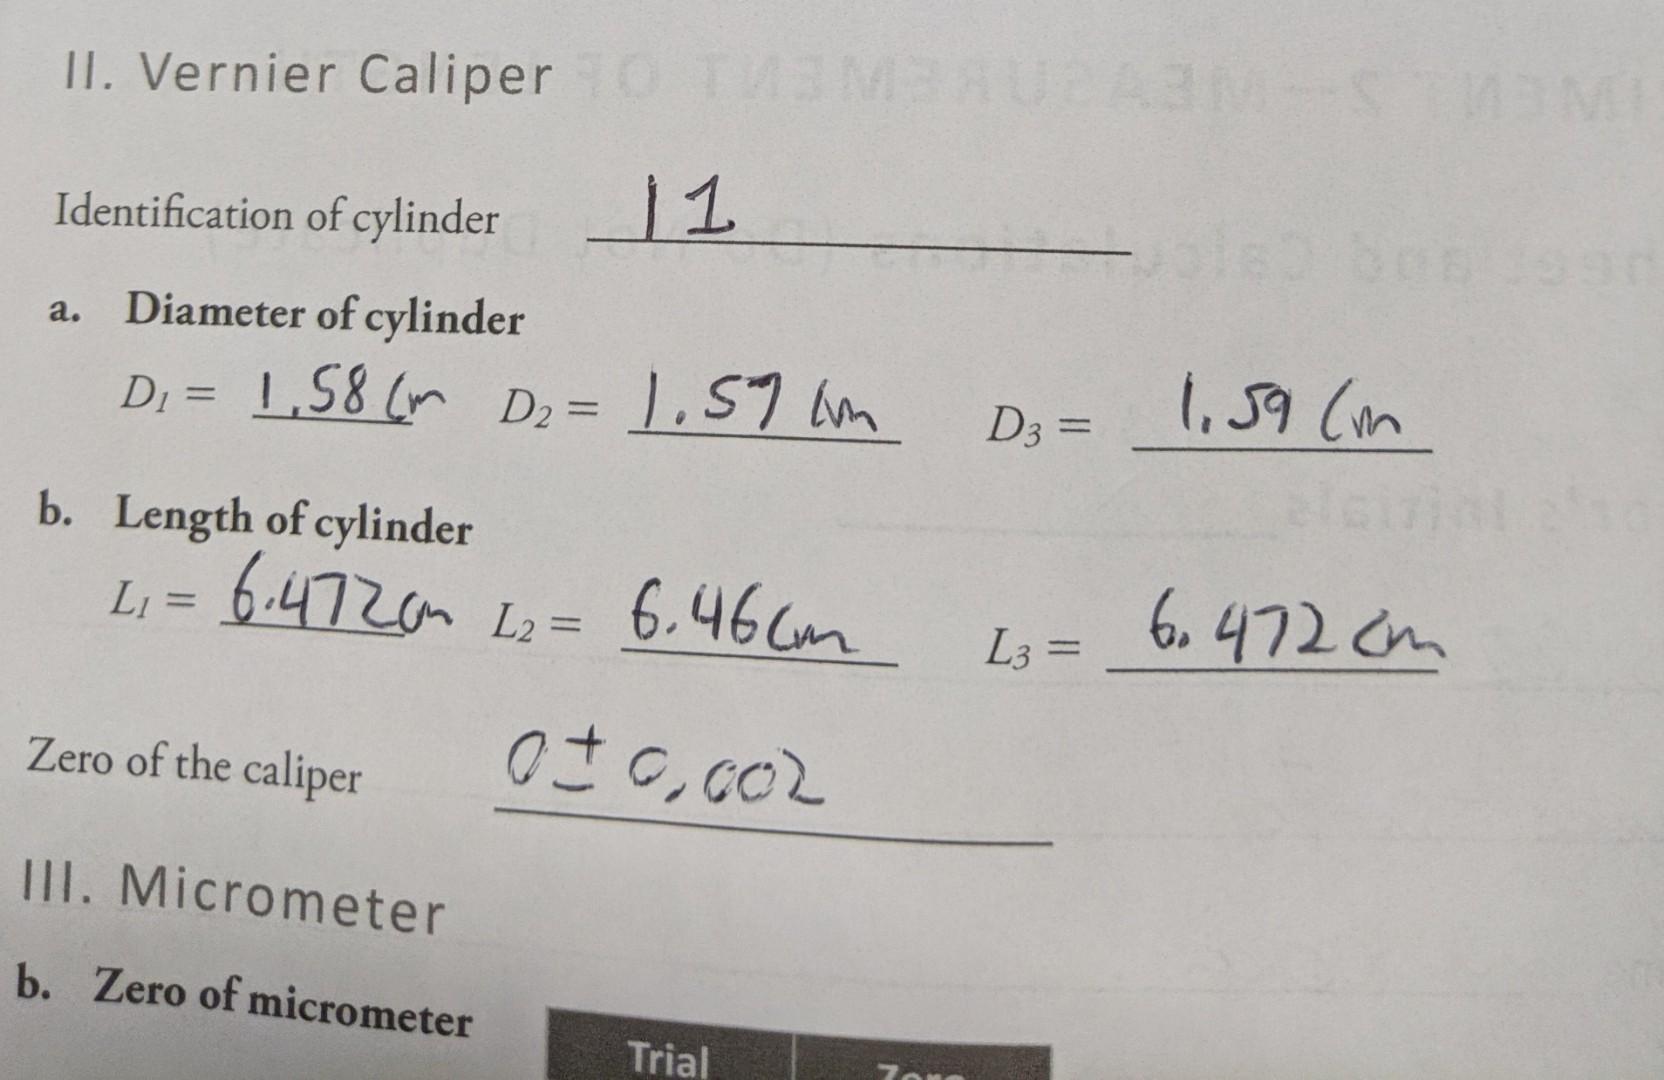 II. Vernier Caliper
Identification of cylinder 11
a. Diameter of cylinder
D1 = 1.58 cm D2 = 1.57 cm D3 = 1.59 cm
b. Length of cylinder
L1 = 6.472 cm L2 = 6.46 cm L3 = 6.472 cm
Zero of the caliper 0 ± 0.002
III. Micrometer
b. Zero of micrometer
Trial Zero